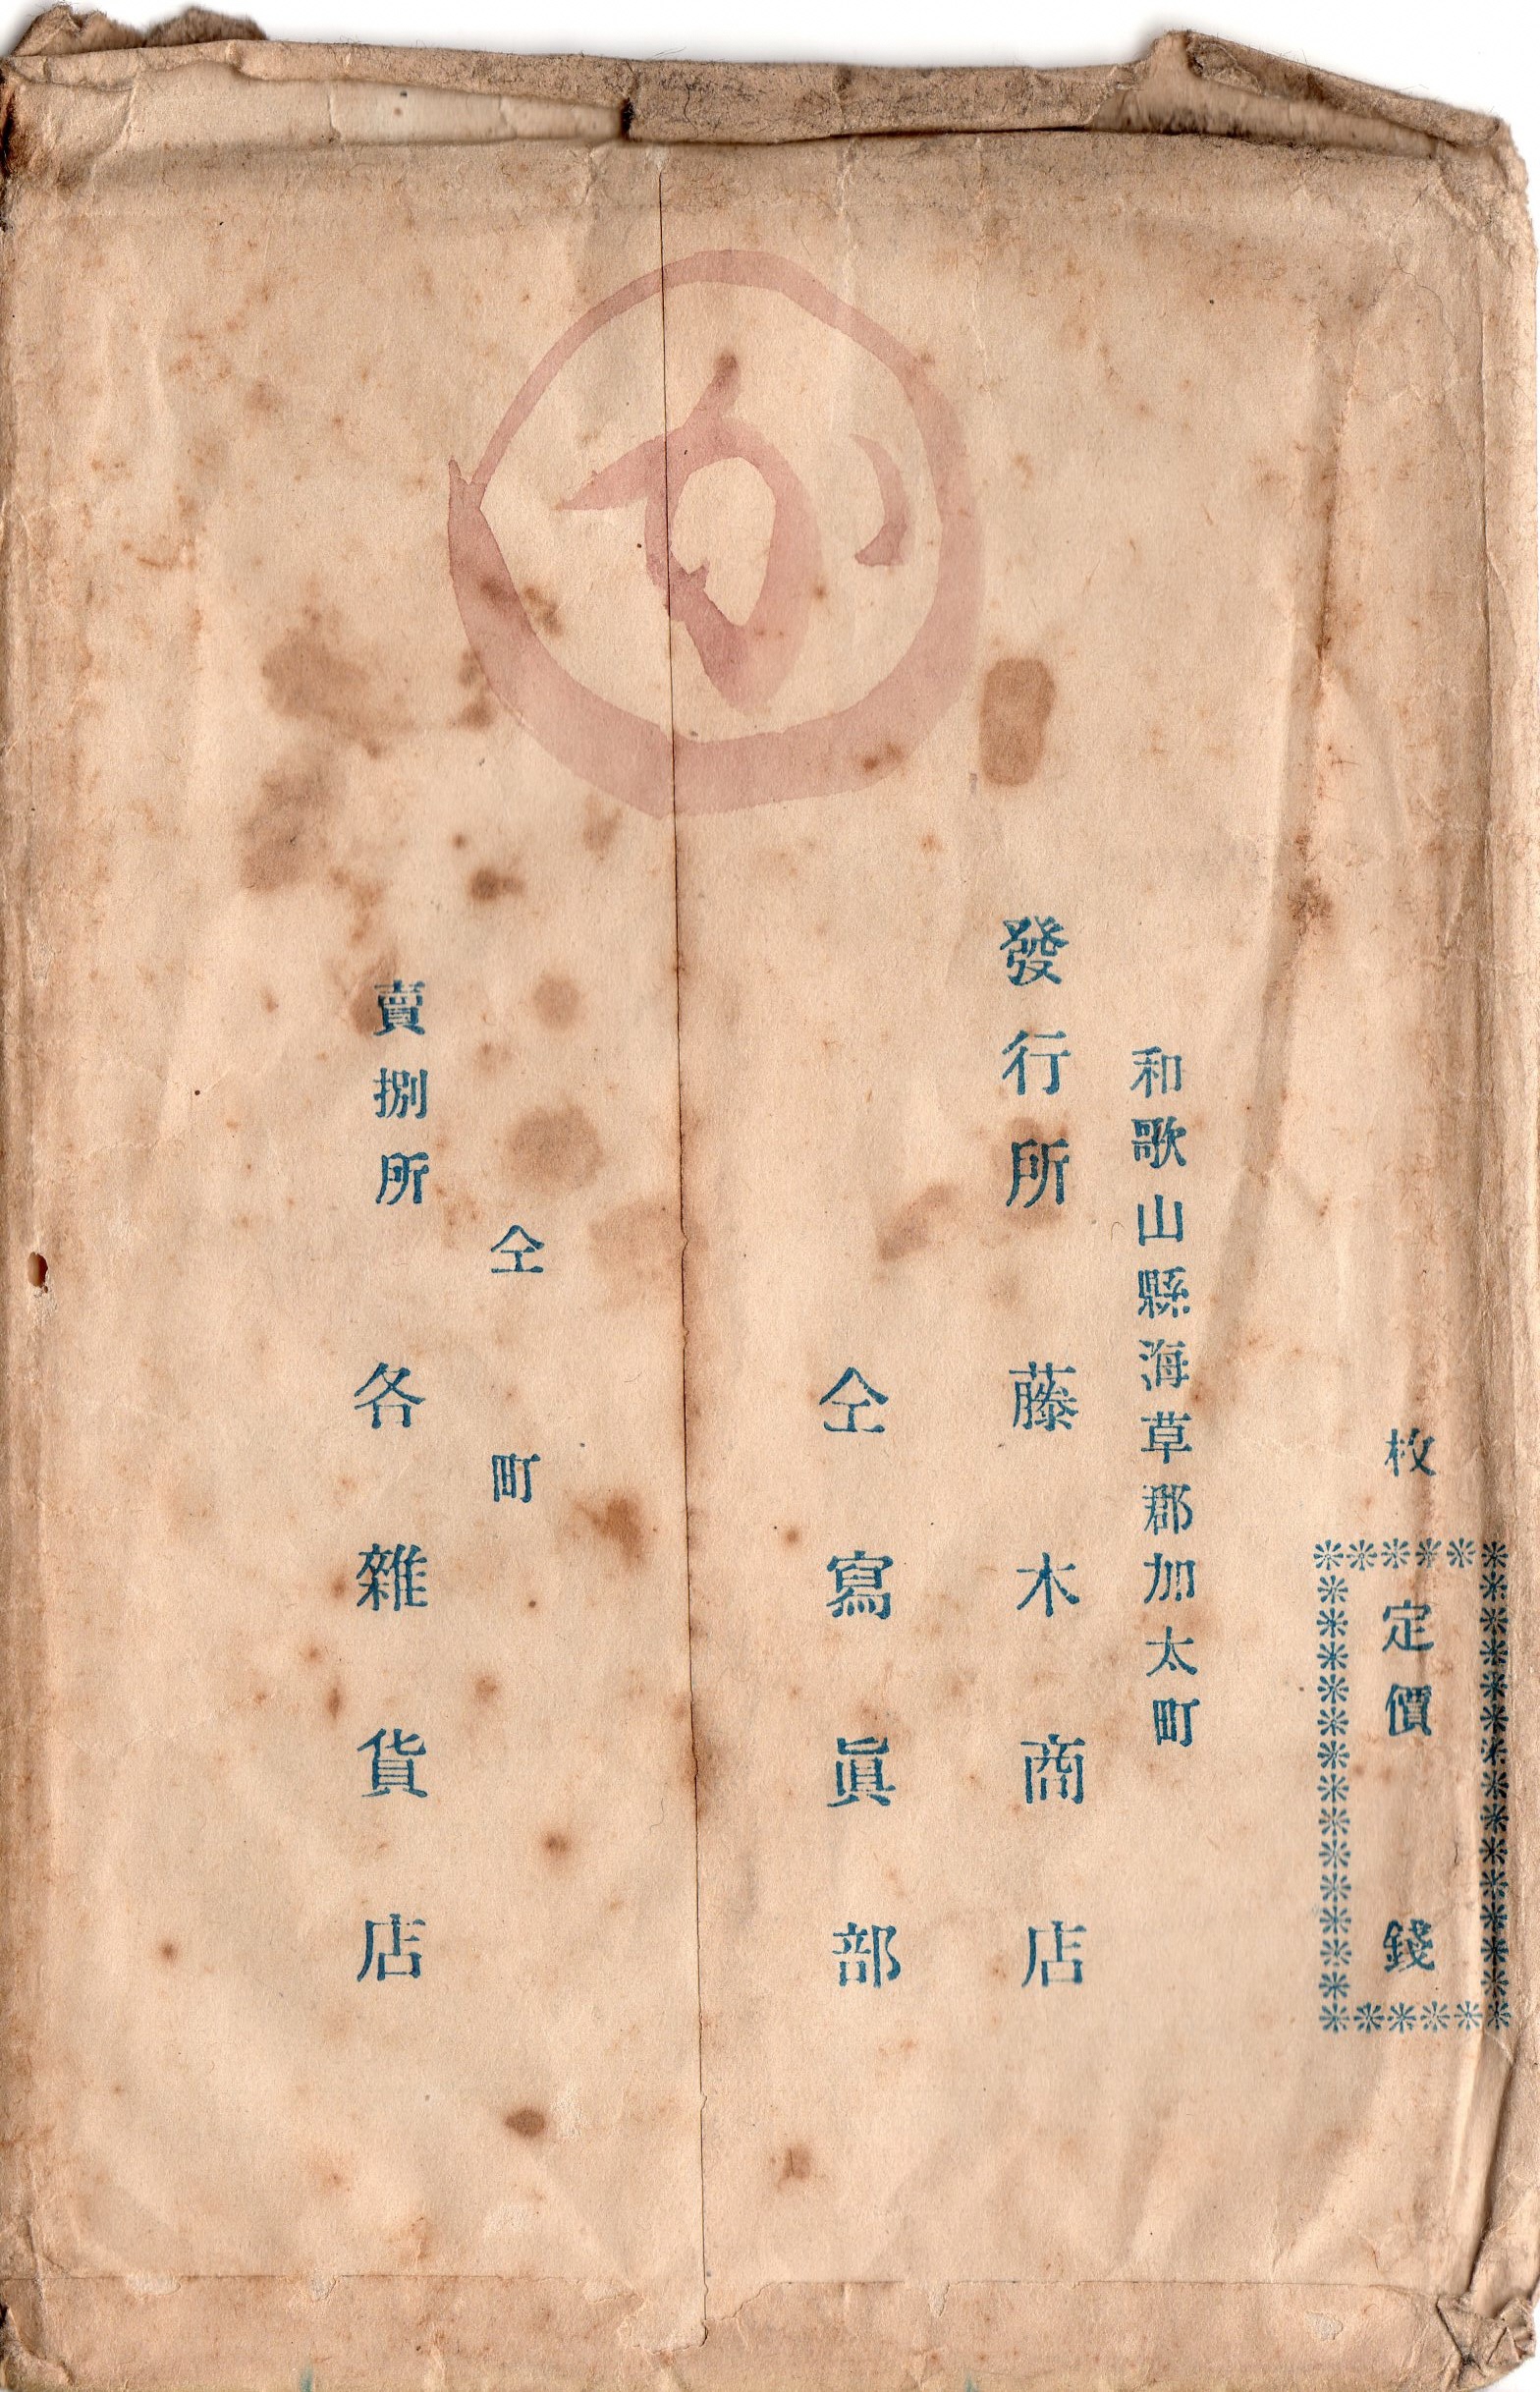 枚
定價 錢
和歌山縣海草郡加太町
發行所 藤木商店
仝寫眞部
仝町
賣捌所 各雜貨店
か